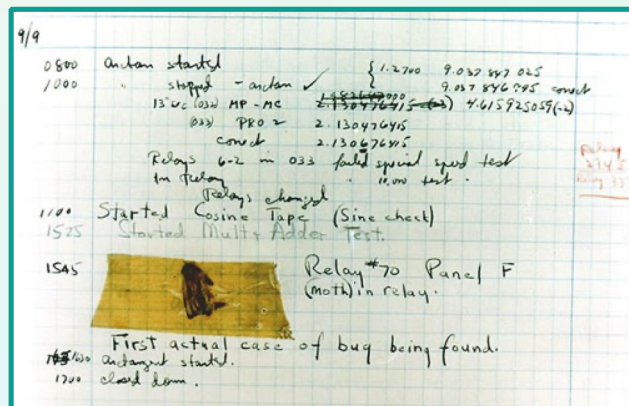 9/9
0800 antan started { 1.2700 9.037 847 025
1000 " stopped - antan ✓ 9.037 846 995 conect
13" uc (032) MP - MC 2.130476415 4.615925059(-2)
(033) PRO 2 2.130476415
conect 2.130676415
Relays 6-2 in 033 failed special speed test
in Relay " 10.000 test .
Relay
Relays changed
1100 Started Cosine Tape (Sine check)
1525 Started Mult + Adder Test.
1545 Relay #70 Panel F
(moth) in relay.
First actual case of bug being found.
1630 antangent started.
1700 closed down .